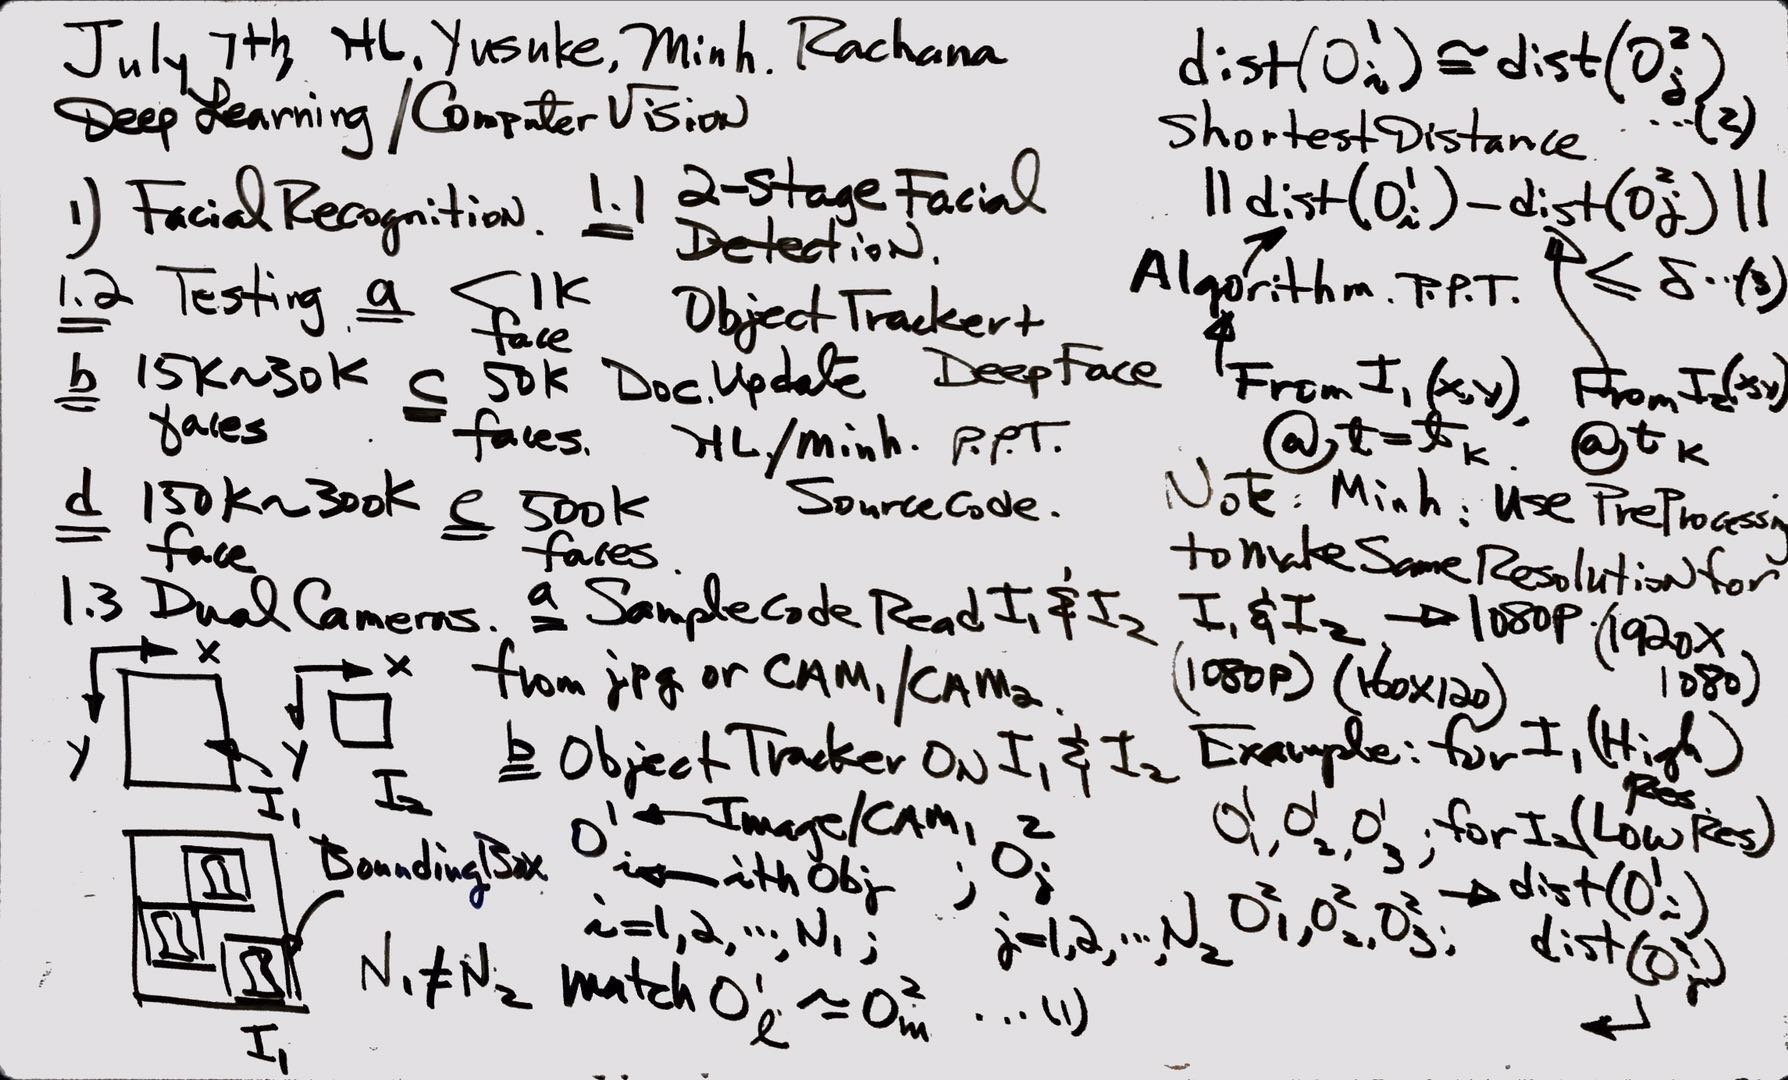 July 7th, HL, Yusuke, Minh. Rachana
Deep Learning / Computer Vision
1) Facial Recognition. 1.1 2-Stage Facial
Detection.
1.2 Testing. a <1K
face
Object Tracker +
DeepFace
b 15K~30K
faces
c 50K
faces.
Doc. Update
HL/Minh. P.P.T.
Source Code.
d 150K~300K
face
e 500K
faces.
1.3 Dual Cameras. a Sample Code Read I1 & I2
from jpg or CAM1/CAM2.
X
Y
I1
X
Y
I2
b Object Tracker ON I1 & I2
O^1_i ← Image/CAM1
← ith Obj ; O^2_j
i=1,2,...,N1; j=1,2,...,N2
Bounding Box
I1
N1≠N2 match O^1_l ≈ O^2_m ...(1)
dist(O^1_i) ≅ dist(O^2_j)
...(2)
Shortest Distance.
|| dist(O^1_i) - dist(O^2_j) ||
≤ δ ...(3)
Algorithm. P.P.T.
From I1(x,y),
@ t=tK.
From I2(x,y)
@ tK
Note: Minh: Use PreProcessing
to make Same Resolution for
I1 & I2 → 1080P. (1920X
1080)
(1080P) (160X120)
Example: for I1 (High
Res.)
O^1_1, O^1_2, O^1_3; for I2 (Low Res)
O^2_1, O^2_2, O^2_3; → dist(O^1_i)
dist(O^2_j)